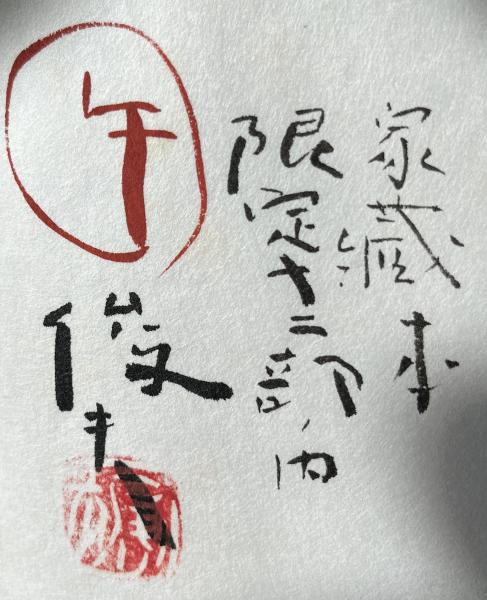 家蔵本
限定十二部ノ内
午
俊夫